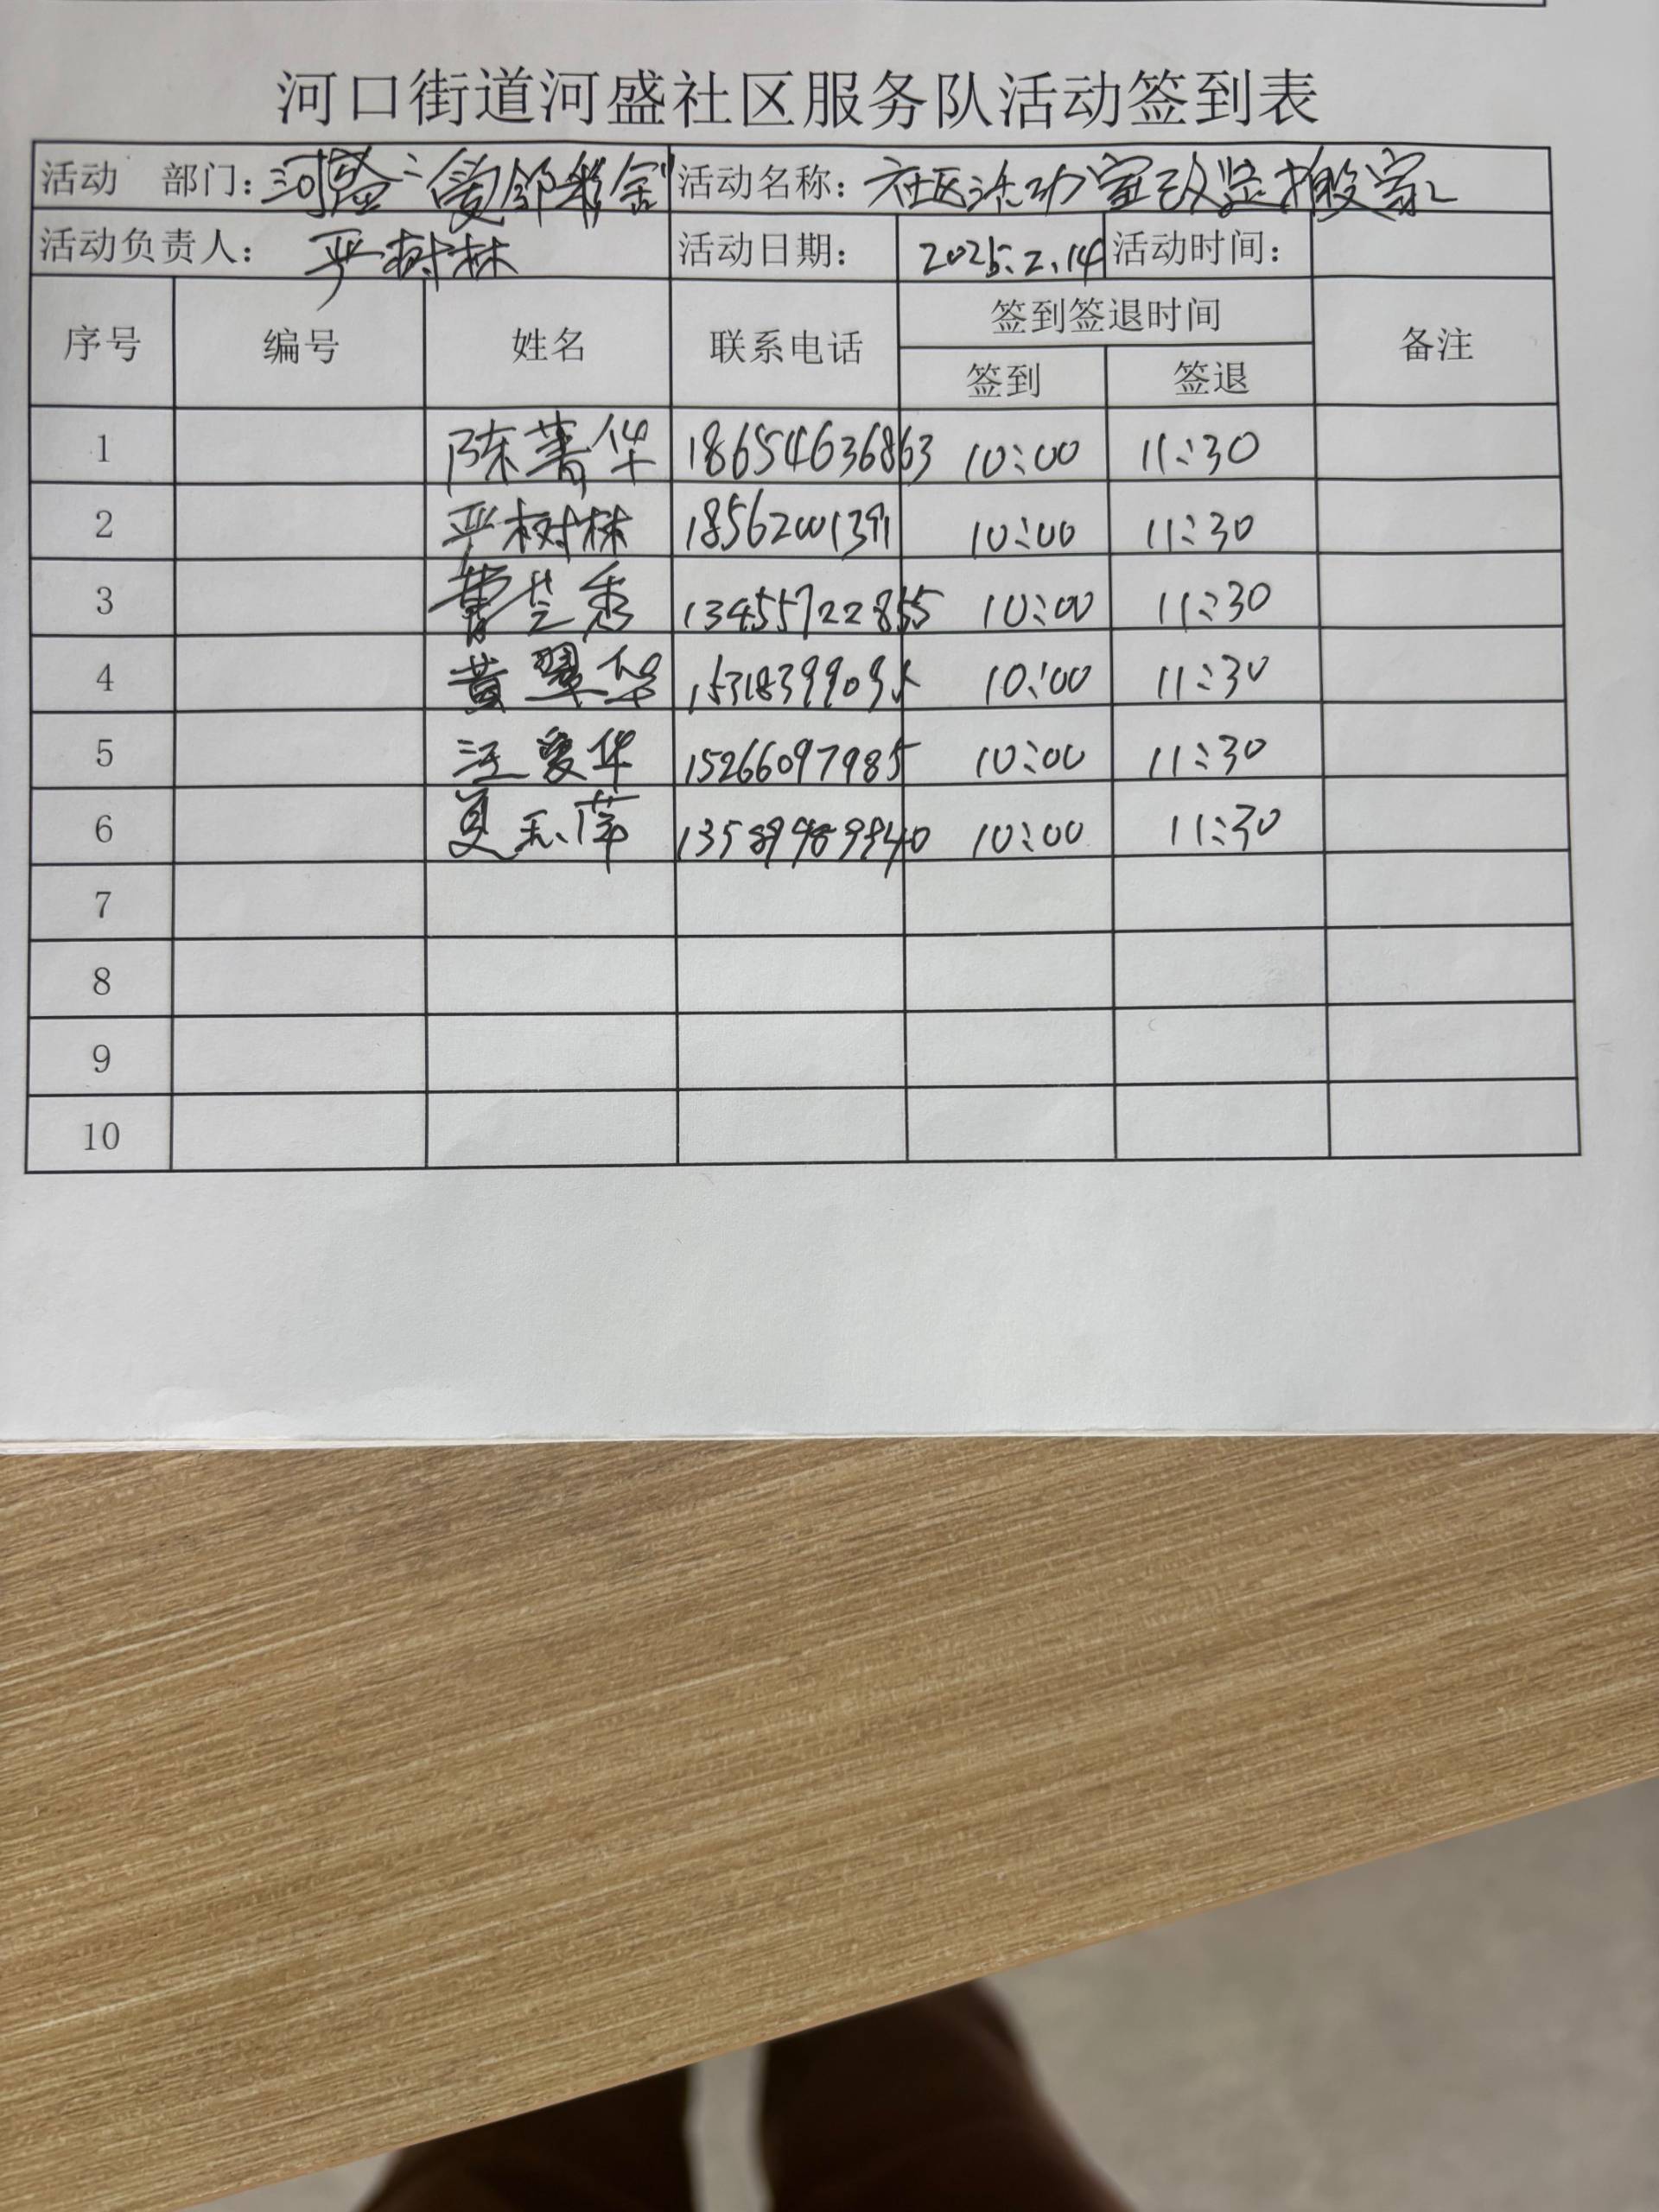 河口街道河盛社区服务队活动签到表
活动 部门：河盛 爱邻 活动名称：社区活动室改造搬家
活动负责人：严树林 活动日期：2025.2.14 活动时间：
序号 编号 姓名 联系电话 签到签退时间 备注
签到 签退
1 陈菁华 18654636863 10:00 11:30
2 严树林 18562001391 10:00 11:30
3 曹芝秀 13455722855 10:00 11:30
4 黄翠华 10:00 11:30
5 汪爱华 15266097985 10:00 11:30
6 夏 萍 10:00 11:30
7
8
9
10